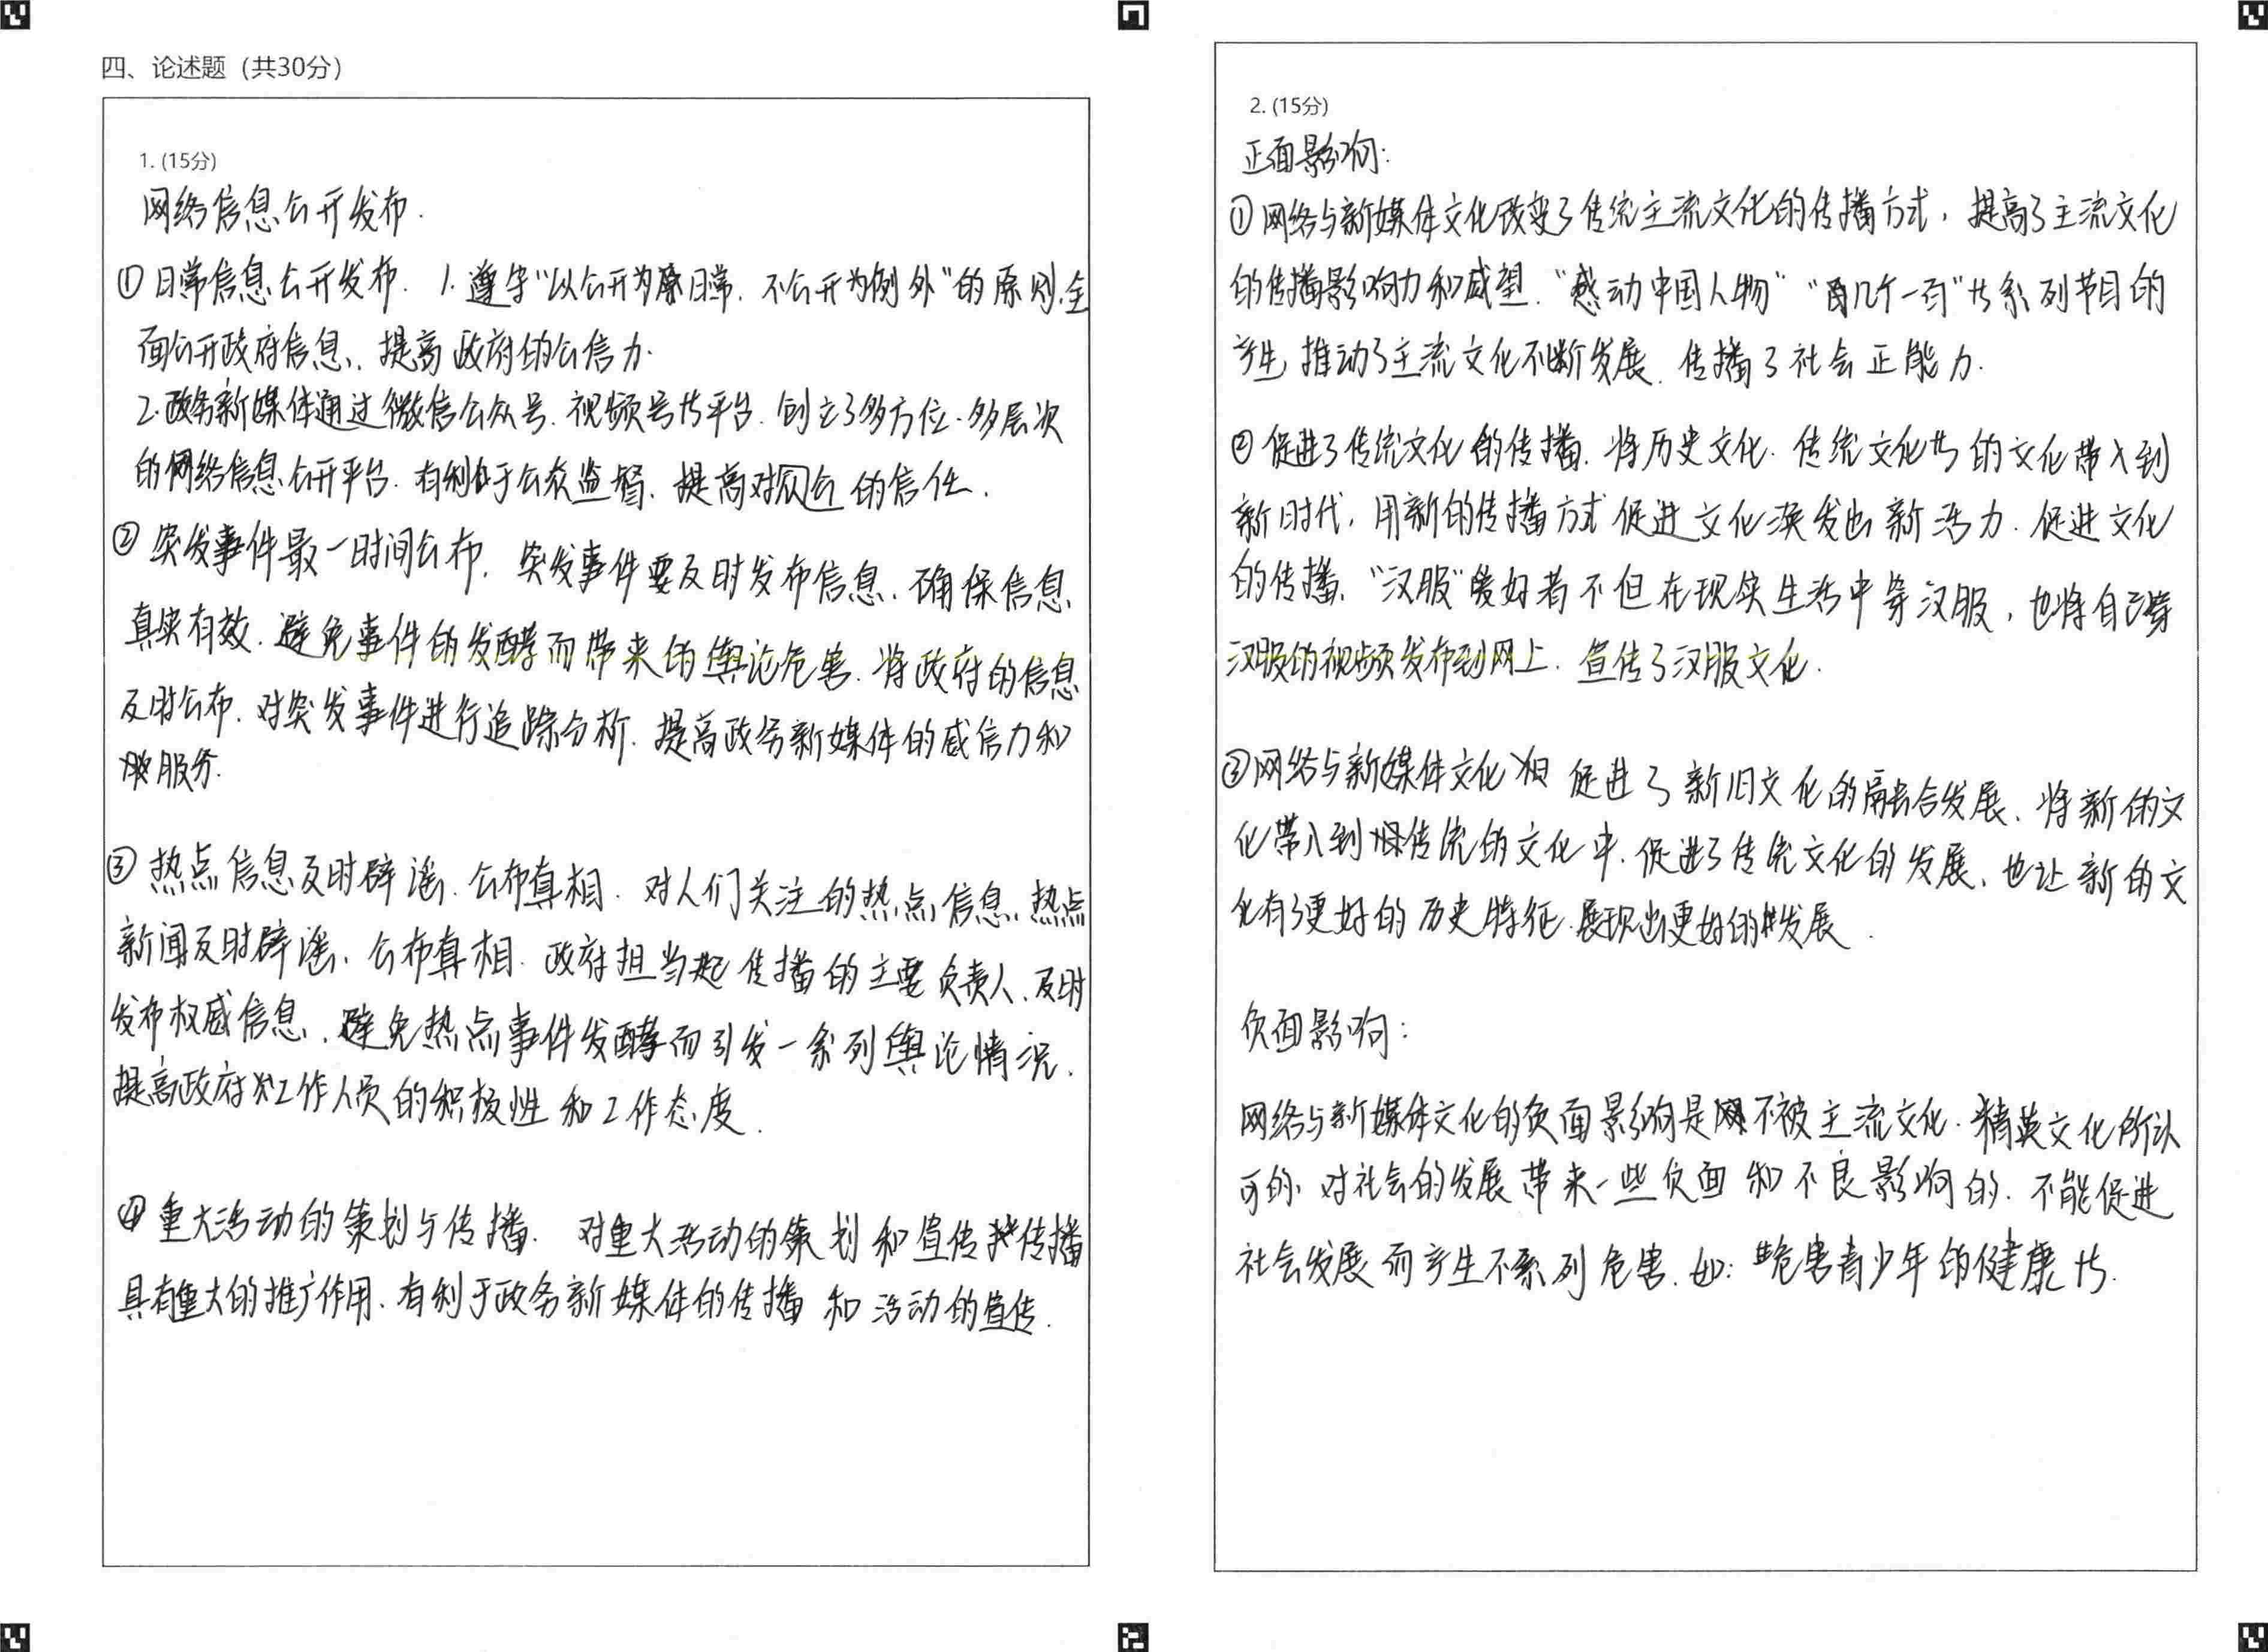 四、论述题（共30分）
1. (15分)
网络信息公开发布.
①日常信息公开发布. 1. 遵守“以公开为日常. 不公开为例外”的原则,全
面公开政府信息、提高政府的公信力.
2.政务新媒体通过微信公众号.视频号等平台.创立了多方位.多层次
的网络信息公开平台.有利于公众监督、提高对 的信任.
②突发事件最一时间公布. 突发事件要及时发布信息、确保信息
真实有效.避免事件的发酵而带来的舆论危害.将政府的信息
及时公布.对突发事件进行追踪分析.提高政务新媒体的威信力和
服务.
③热点信息及时辟谣.公布真相. 对人们关注的热点信息、热点
新闻及时辟谣、公布真相.政府担当起传播的主要负责人、及时
发布权威信息、避免热点事件发酵而引发一系列舆论情况.
提高政府工作人员的积极性和工作态度.
④重大活动的策划与传播. 对重大活动的策划和宣传传播
具有重大的推广作用、有利于政务新媒体的传播和活动的宣传.
2. (15分)
正面影响:
①网络与新媒体文化改变了传统主流文化的传播方式，提高了主流文化
的传播影响力和威望.“感动中国人物”“几个一百”等系列节目的
产生,推动了主流文化不断发展.传播了社会正能力.
②促进了传统文化的传播.将历史文化.传统文化等的文化带入到
新时代,用新的传播方式促进文化涣发出新活力.促进文化
的传播、“汉服”爱好者不但在现实生活中穿汉服，也将自己穿
汉服的视频发布到网上.宣传了汉服文化.
③网络与新媒体文化 促进了新旧文化的融合发展、将新的文
化带入到传统的文化中.促进了传统文化的发展、也让新的文
化有了更好的历史特征.展现出更好的发展.
负面影响:
网络与新媒体文化的负面影响是不被主流文化.精英文化所认
可的,对社会的发展带来一些负面和不良影响的.不能促进
社会发展而产生不系列危害.如:危害青少年的健康等.